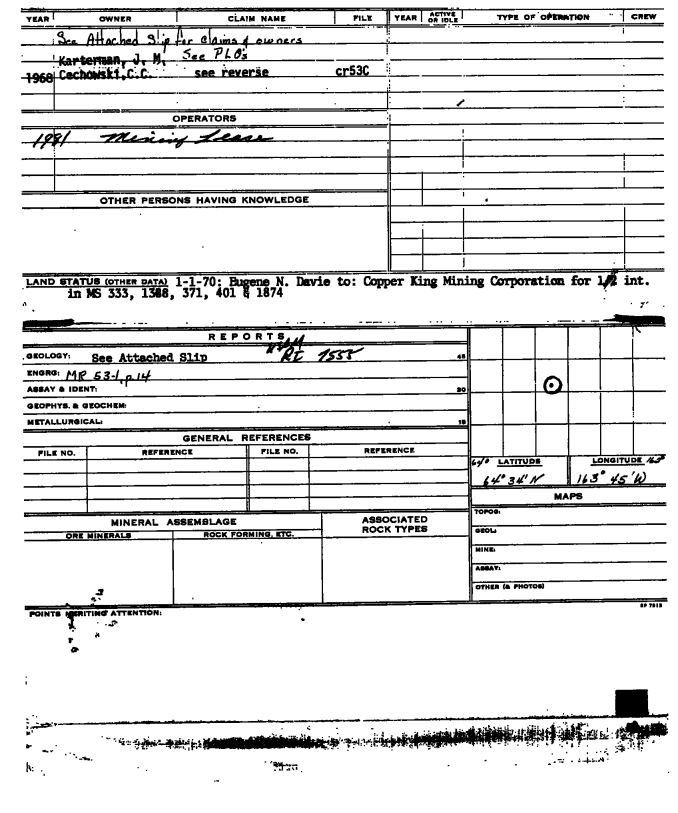 YEAR OWNER CLAIM NAME FILE YEAR ACTIVE OR IDLE TYPE OF OPERATION CREW
See Attached Slip for claims & owners
Karterman, J. M. See PLO's
1968 Cechowski, C.C. see reverse cr53C
OPERATORS
1981 Mining Lease
OTHER PERSONS HAVING KNOWLEDGE
LAND STATUS (OTHER DATA) 1-1-70: Eugene N. Davie to: Copper King Mining Corporation for 1/2 int.
in MS 333, 1388, 371, 401 & 1874
REPORTS
GEOLOGY: See Attached Slip RI 7555 45
ENGRG: MR 53-1, p.14
ASSAY & IDENT: 30
GEOPHYS. & GEOCHEM:
METALLURGICAL: 15
GENERAL REFERENCES
FILE NO. REFERENCE FILE NO. REFERENCE
64° LATITUDE LONGITUDE 163°
64° 34' N 163° 45' W
MAPS
MINERAL ASSEMBLAGE ASSOCIATED ROCK TYPES
ORE MINERALS ROCK FORMING, ETC.
TOPOG:
GEOL:
MINE:
ASSAY:
OTHER (& PHOTOS)
POINTS MERITING ATTENTION: